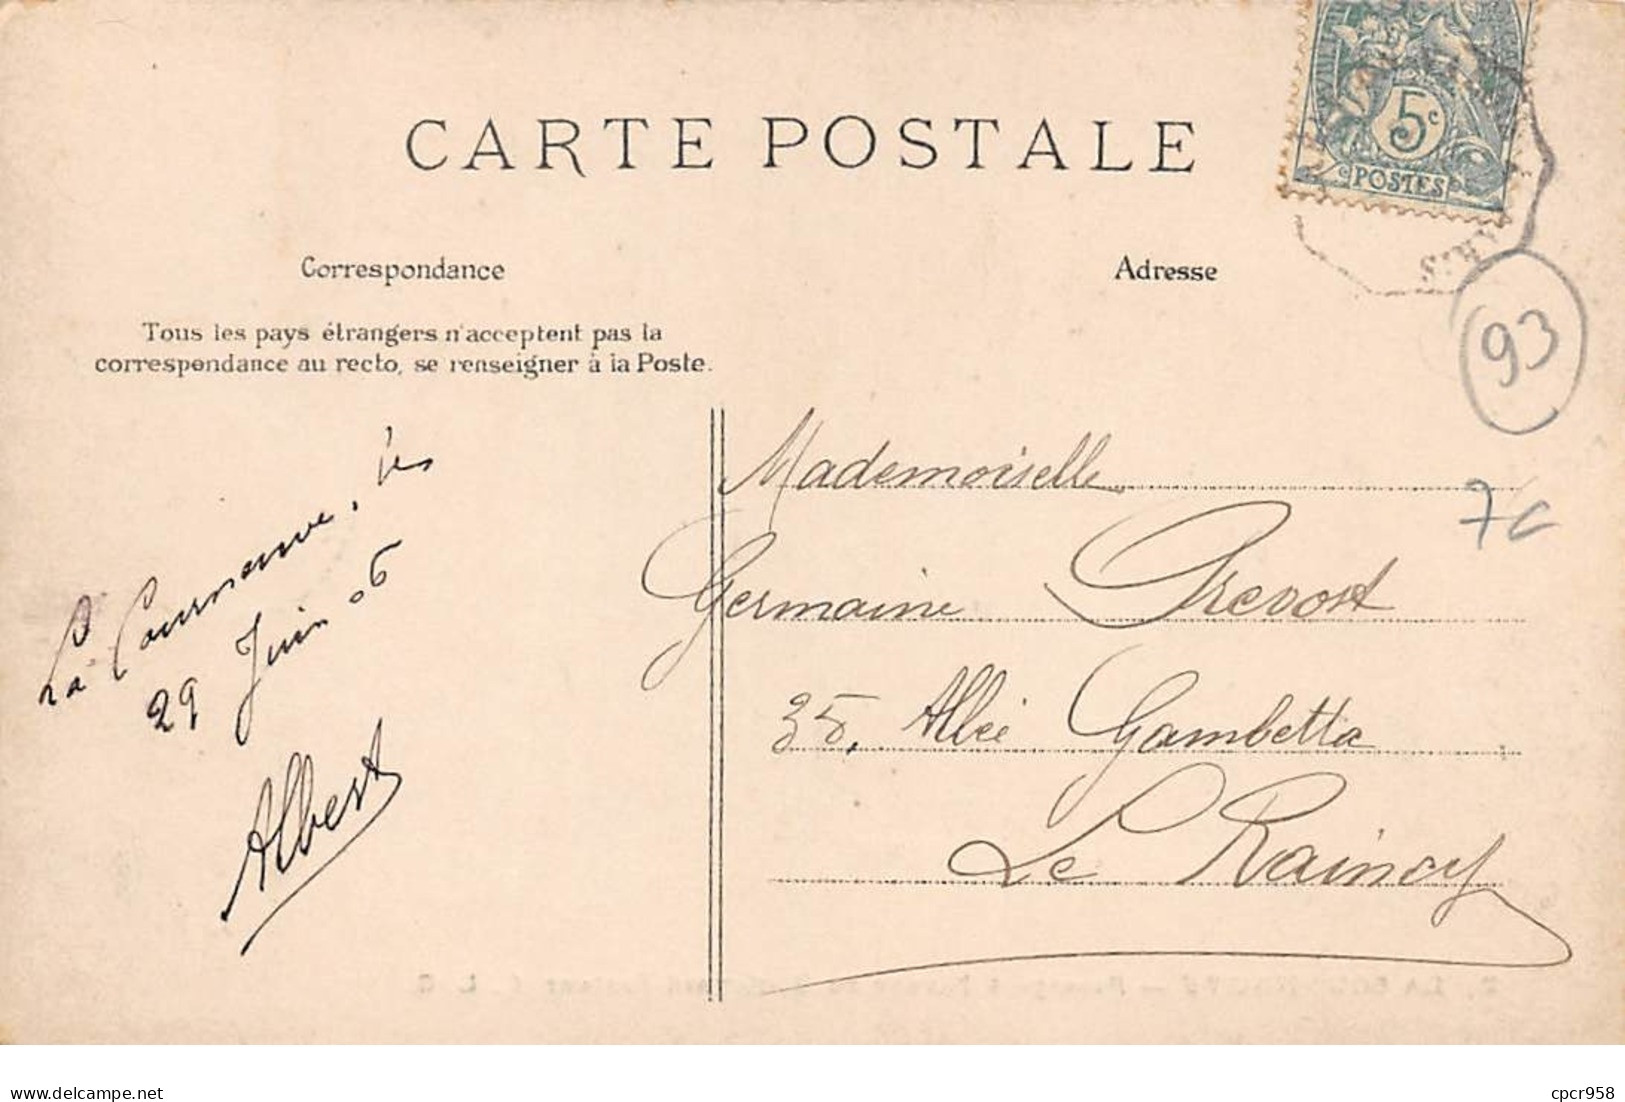 CARTE POSTALE
5c
POSTES
PARIS
Correspondance
Adresse
Tous les pays étrangers n'acceptent pas la
correspondance au recto, se renseigner à la Poste.
93
7c
La Courneuve, les
29 Juin 06
Albert
Mademoiselle
Germaine Prevost
35, Allée Gambetta
Le Raincy
delcampe.net
cpcr958